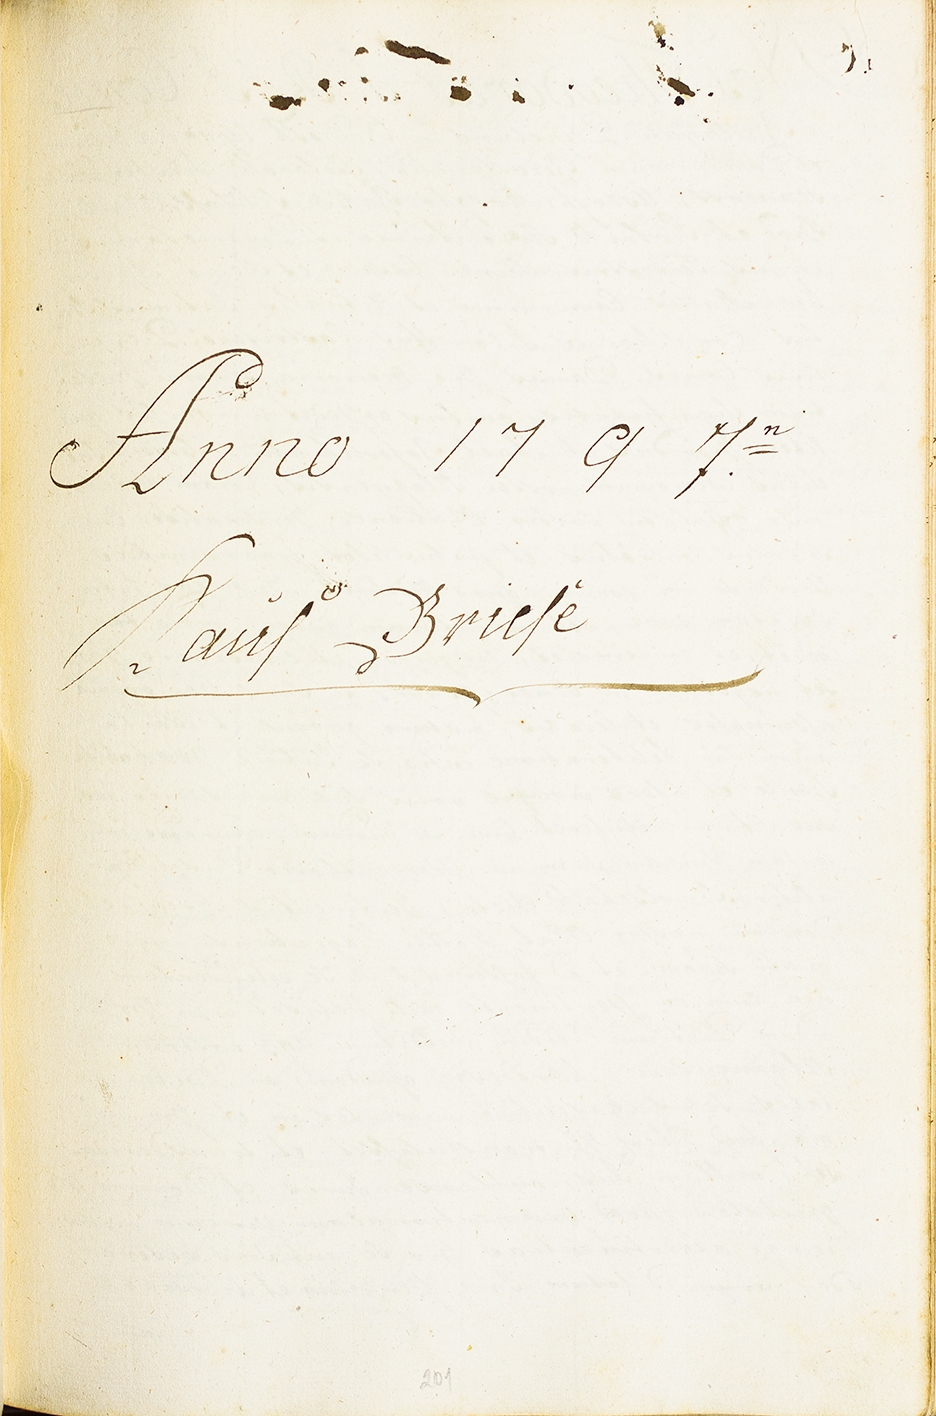 Anno 1797.n
Kaufs Briefe
201